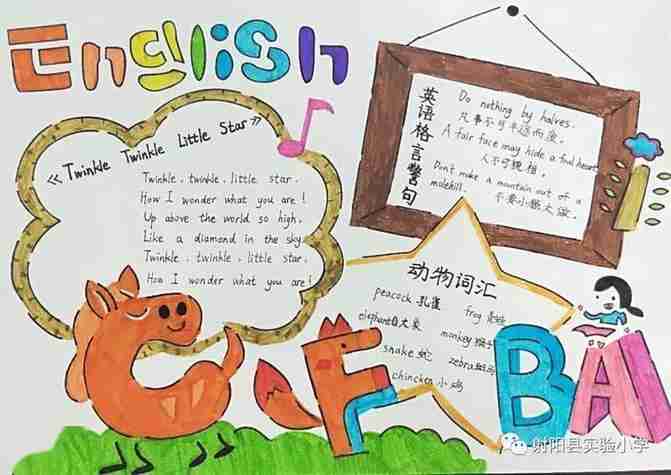 English
《Twinkle Twinkle Little Star》
Twinkle, twinkle, little star.
How I wonder what you are!
Up above the world so high,
Like a diamond in the sky
Twinkle, twinkle, little star.
How I wonder what you are!
英语格言警句
Do nothing by halves.
凡事不可半途而废.
A fair face may hide a foul heart
人不可貌相.
Don't make a mountain out of a
molehill. 不要小题大做.
动物词汇
peacock 孔雀 frog
elephant 大象 monkey
snake 蛇 zebra 斑马
chincken 小鸡
C F B A
射阳县实验小学